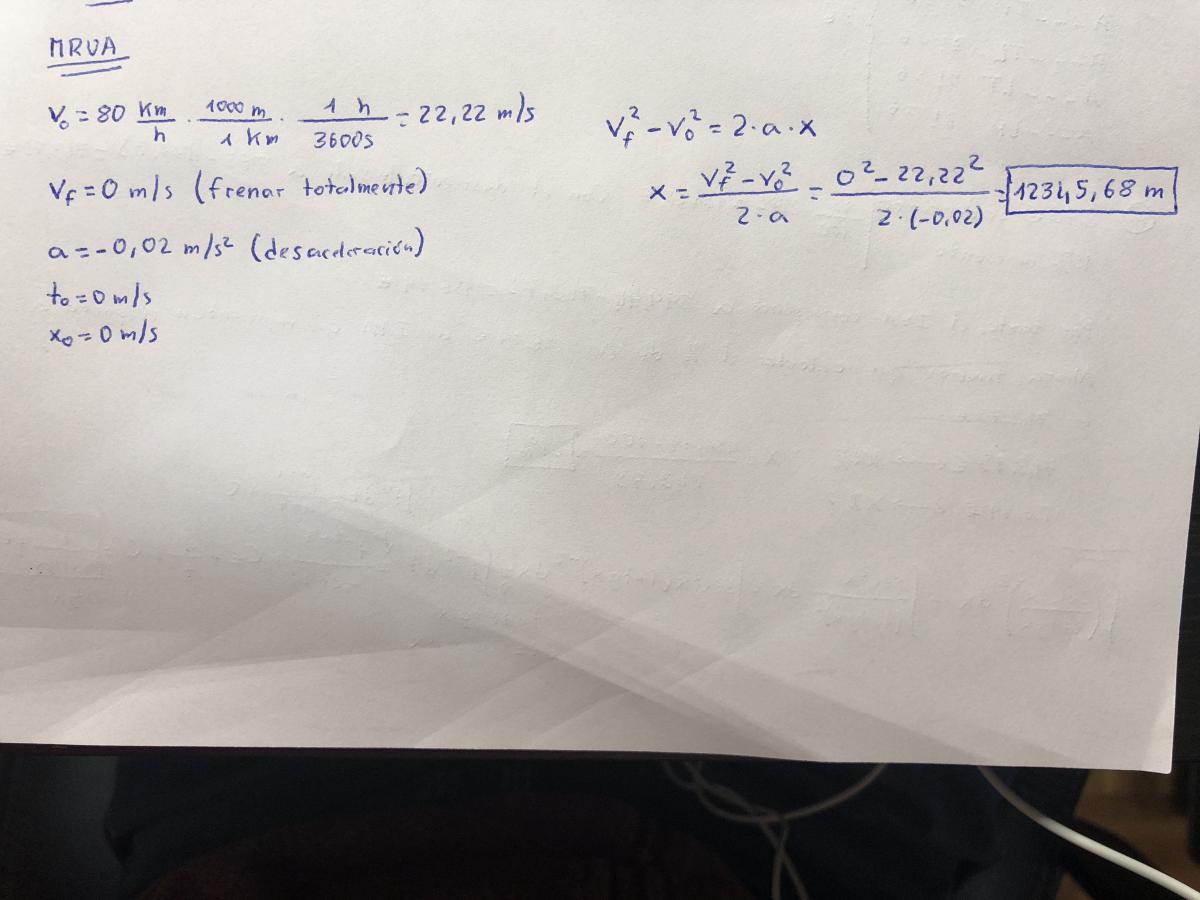 MRUA
V₀ = 80 Km/h · 1000 m/1 Km · 1 h/3600s = 22,22 m/s
Vf = 0 m/s (frenar totalmente)
a = -0,02 m/s² (desaceleración)
t₀ = 0 m/s
x₀ = 0 m/s
Vf² - V₀² = 2·a·x
x = Vf² - V₀²/2·a = 0² - 22,22²/2·(-0,02) = 12345,68 m